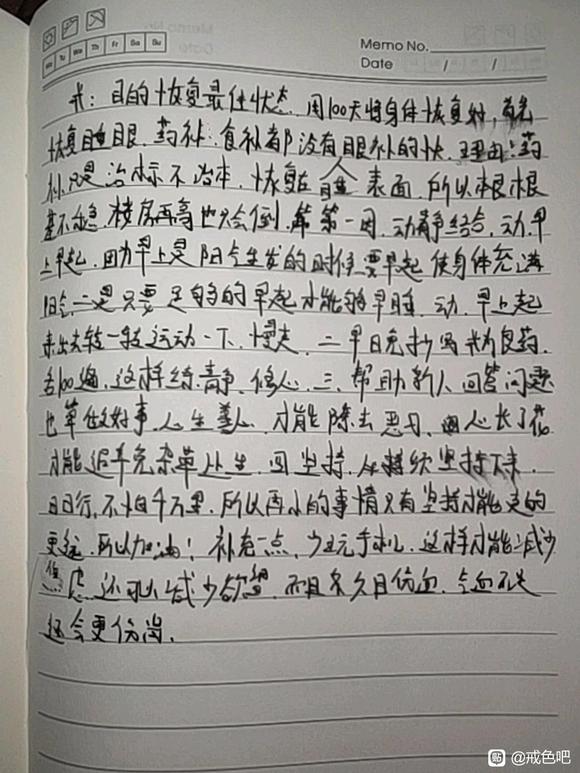 Mo Tu We Th Fr Sa Su
Memo No.
Date / /
戒：目的恢复最佳状态，用100天将身体恢复好，首先
恢复睡眠，药补、食补都没有眼补的快，理由：药
补只是治标不治本，恢复在表面，所以根
基不稳，楼房再高也会倒，第一周，动静结合，动，早
上早起，因为早上是阳气生发的时候，要早起使身体充满
阳气，二是只要足够的早起才能够早睡，动，早上起
来出去转一转运动一下，慢走，二早日免抄写戒为良药，
100遍，这样练静，修心，三，帮助新人回答问题
也算做好事，人生善人，才能除去恶习，心长了花
才能避免杂草丛生，四坚持，从持续坚持下来，
日日行，不怕千万里，所以再小的事情只有坚持才能走的
更远，所以加油！补充一点，少玩手机，这样才能减少
焦虑，还可以减少欲望，而且久目伤血，气血不足
还会更伤肾，
@戒色吧